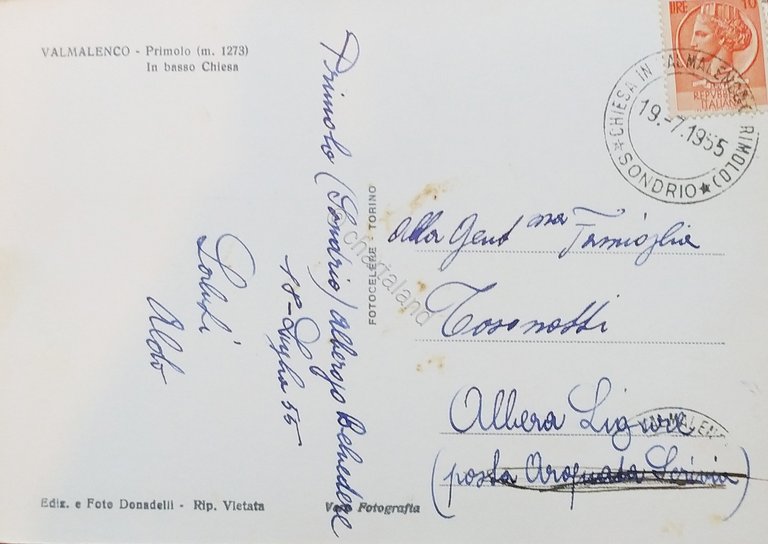 VALMALENCO - Primolo (m. 1273)
In basso Chiesa
Primolo (Sondrio) albergo Belvedere
18-Luglio 55
Saluti
Aldo
Ediz. e Foto Donadelli - Rip. Vietata
Vera Fotografia
FOTOCELERE - TORINO
chartaland
LIRE 10
REPUBBLICA
ITALIANA
CHIESA IN VALMALENCO (PRIMOLO)
19.-7.1955
★ SONDRIO ★
Alla Gent ma Famiglia
Albera Ligure
VALMALENC
(posta Arquata Scrivia)